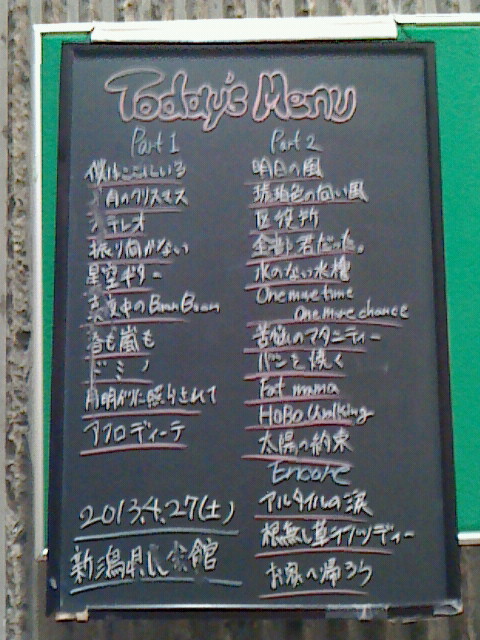 Today's Menu
Part 1
僕はここにいる
月のクリスマス
ステレオ
振り向かない
星空ギター
真夜中のBoon Boon
春も嵐も
ドミノ
月明かりに照らされて
アフロディーテ
2013.4.27(土)
新潟県民会館
Part 2
明日の風
琥珀色の向い風
区役所
全部君だった。
水のない水槽
One more time
One more chance
苦悩のマタニティー
パンを焼く
Fat mama
HOBO Walking
太陽の約束
Encore
アルタイルの涙
根無し草ラプソディー
お家へ帰ろう